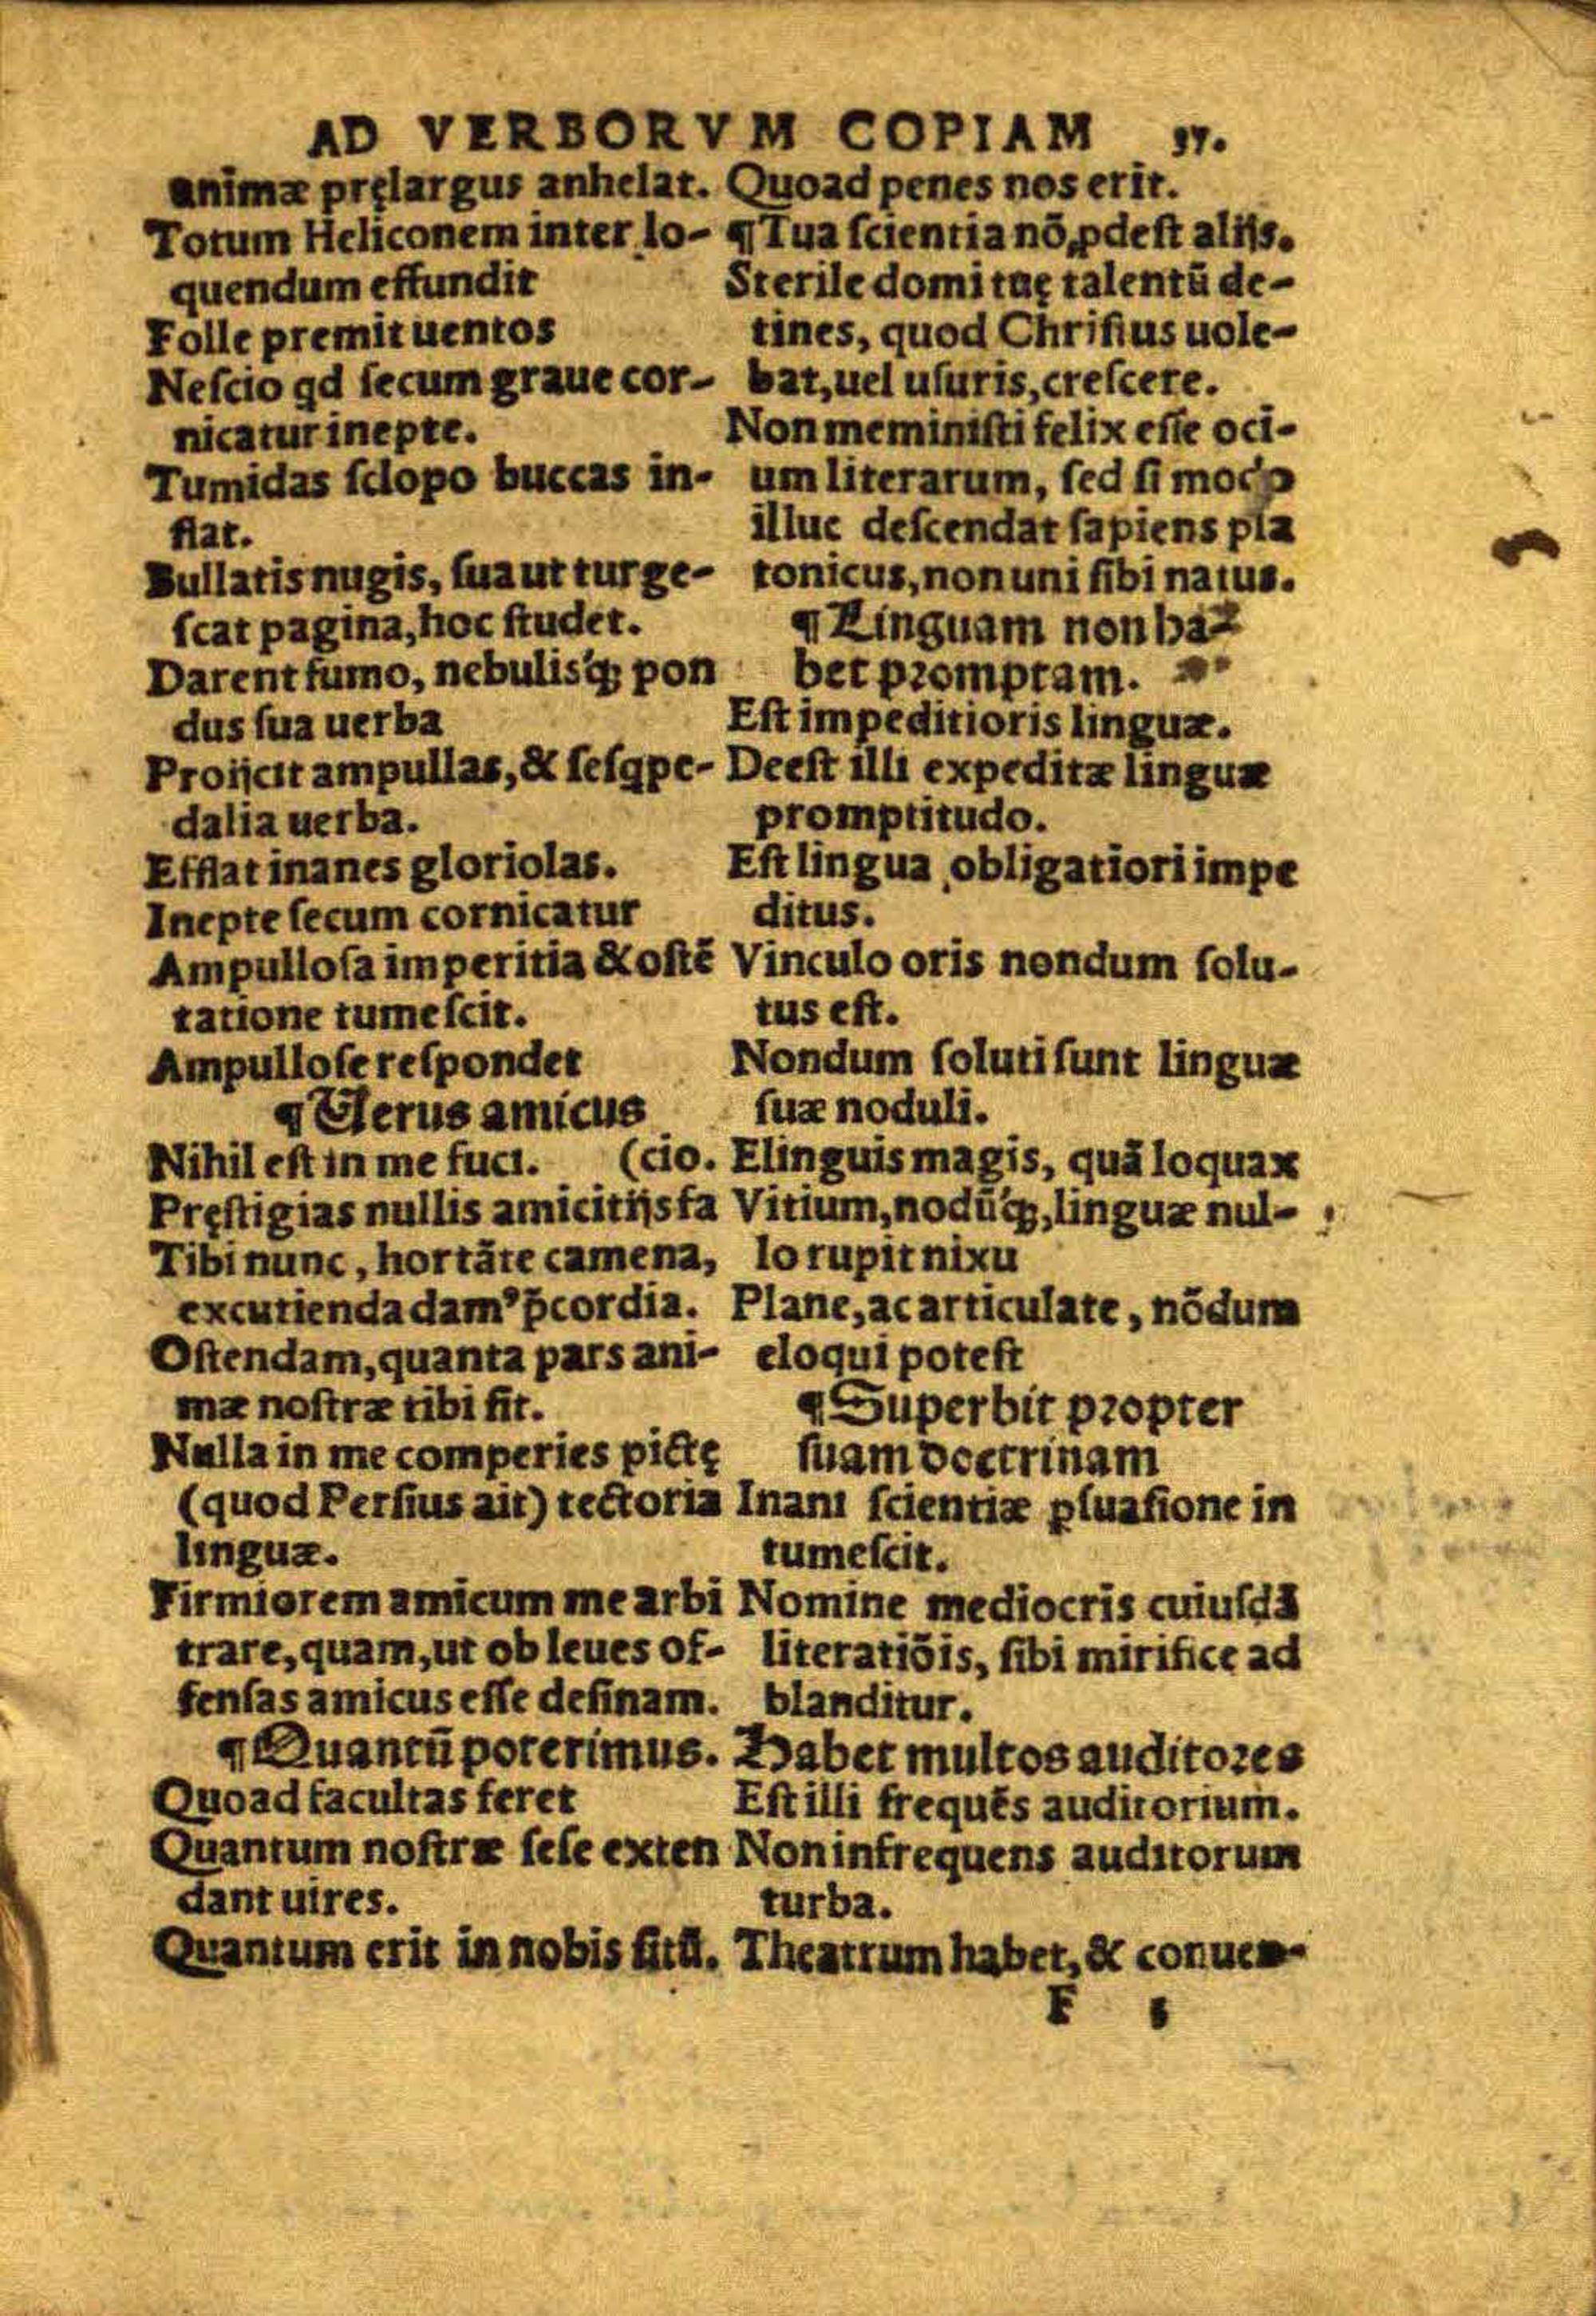 AD VERBORVM COPIAM 37.
animæ pręlargus anhelat.
Totum Heliconem inter lo-
quendum effundit
Folle premit uentos
Neſcio qd ſecum graue cor-
nicatur inepte.
Tumidas ſclopo buccas in-
flat.
Bullatis nugis, ſua ut turge-
ſcat pagina, hoc ſtudet.
Darent fumo, nebulisq́; pon
dus ſua uerba
Proijcit ampullas, & ſeſqpe-
dalia uerba.
Efflat inanes gloriolas.
Inepte ſecum cornicatur
Ampulloſa imperitia & oſtē
tatione tumeſcit.
Ampulloſe reſpondet
¶ Verus amicus
Nihil eſt in me fuci. (cio.
Pręſtigias nullis amicitijs fa
Tibi nunc, hortāte camena,
excutienda damꝰ p̄cordia.
Oſtendam, quanta pars ani-
mæ noſtræ tibi ſit.
Nulla in me comperies pictę
(quod Perſius ait) tectoria
linguæ.
Firmiorem amicum me arbi
trare, quam, ut ob leues of-
fenſas amicus eſſe deſinam.
¶ Quantū poterimus.
Quoad facultas feret
Quantum noſtræ ſeſe exten
dant uires.
Quantum erit in nobis ſitū.
Quoad penes nos erit.
¶ Tua ſcientia nō ꝓdeſt alijs.
Sterile domi tuę talentū de-
tines, quod Chriſtus uole-
bat, uel uſuris, creſcere.
Non meminiſti felix eſſe oci-
um literarum, ſed ſi modo
illuc deſcendat ſapiens pla
tonicus, non uni ſibi natus.
¶ Linguam non ha-
bet promptam.
Eſt impeditioris linguæ.
Deeſt illi expeditæ linguæ
promptitudo.
Eſt lingua obligatiori impe
ditus.
Vinculo oris nondum ſolu-
tus eſt.
Nondum ſoluti ſunt linguæ
ſuæ noduli.
Elinguis magis, quā loquax
Vitium, nodūq́;, linguæ nul-
lo rupit nixu
Plane, ac articulate, nōdum
eloqui poteſt
¶ Superbit propter
ſuam doctrinam
Inani ſcientiæ ꝑſuaſione in
tumeſcit.
Nomine mediocris cuiuſdā
literatiōis, ſibi mirifice ad
blanditur.
Habet multos auditores
Eſt illi frequēs auditorium.
Non infrequens auditorum
turba.
Theatrum habet, & conuen-
F 1